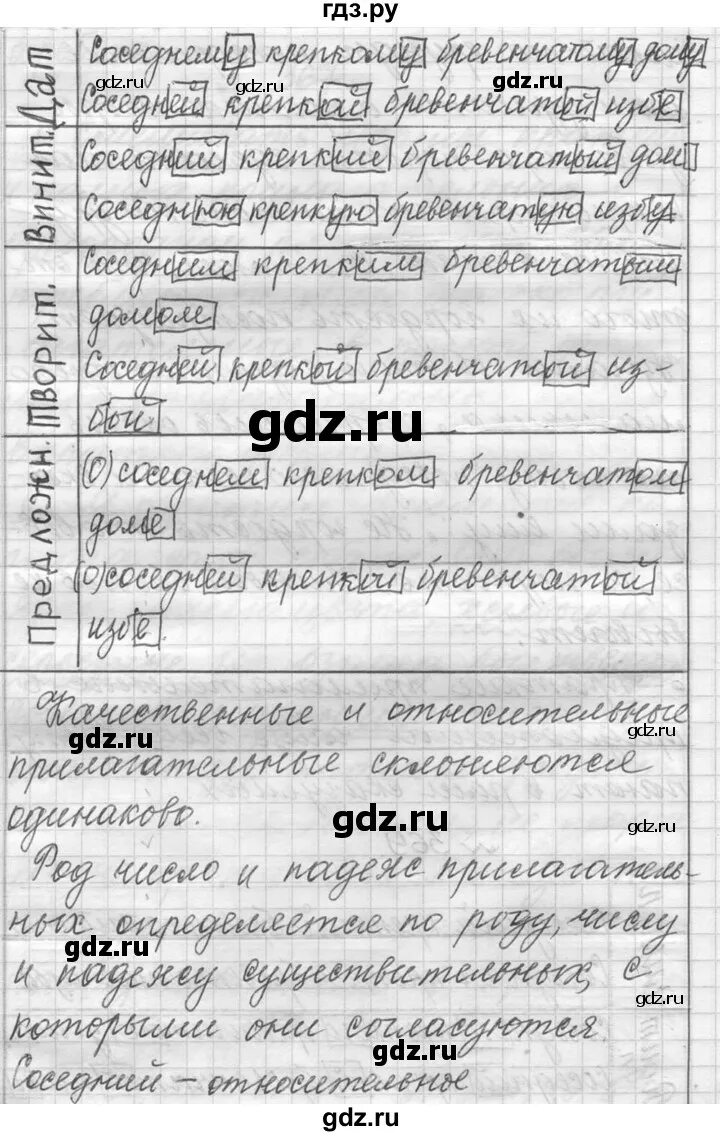 гдз.ру
Дат
Соседнему крепкому бревенчатому дому
gdz.ru
gdz.ru
gdz.ru
Соседней крепкой бревенчатой избе
Винит.
Соседний крепкий бревенчатый дом
Соседнюю крепкую бревенчатую избу
Творит.
Соседним крепким бревенчатым
домом
Соседней крепкой бревенчатой из-
бой
gdz.ru
Предложн.
(О) соседнем крепком бревенчатом
доме
(о) соседней крепкой бревенчатой
избе.
Качественные и относительные
gdz.ru
gdz.ru
прилагательные склоняются
одинаково.
gdz.ru
Род число и падеж прилагатель-
ных определяется по роду, числу
gdz.ru
и падежу существительных, с
gdz.ru
которыми они согласуются.
gdz.ru
Соседний – относительное
gdz.ru